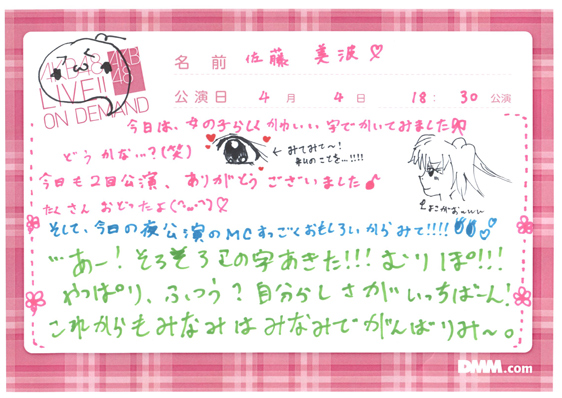 AKB48
LIVE!!
ON DEMAND
AKB
48
名前 佐藤 美波♡
公演日 4月 4日 18:30公演
今日は、女の子らしくかわいい字でかいてみました
どうかない?(笑)
←みてみて〜!
私のことを…!!!!
今日も2回公演、ありがとうございました♪
たくさんおどったよ(^ω^)♡
よこがお〜いい
そして、今日の夜公演のMCすっごくおもしろいからみて!!!!
…あー!そろそろこの字あきた!!!むりぽ!!!
やっぱり、ふつう?自分らしさがいっちばーん!
これからもみなみはみなみでがんばりみ〜。
DMM.com